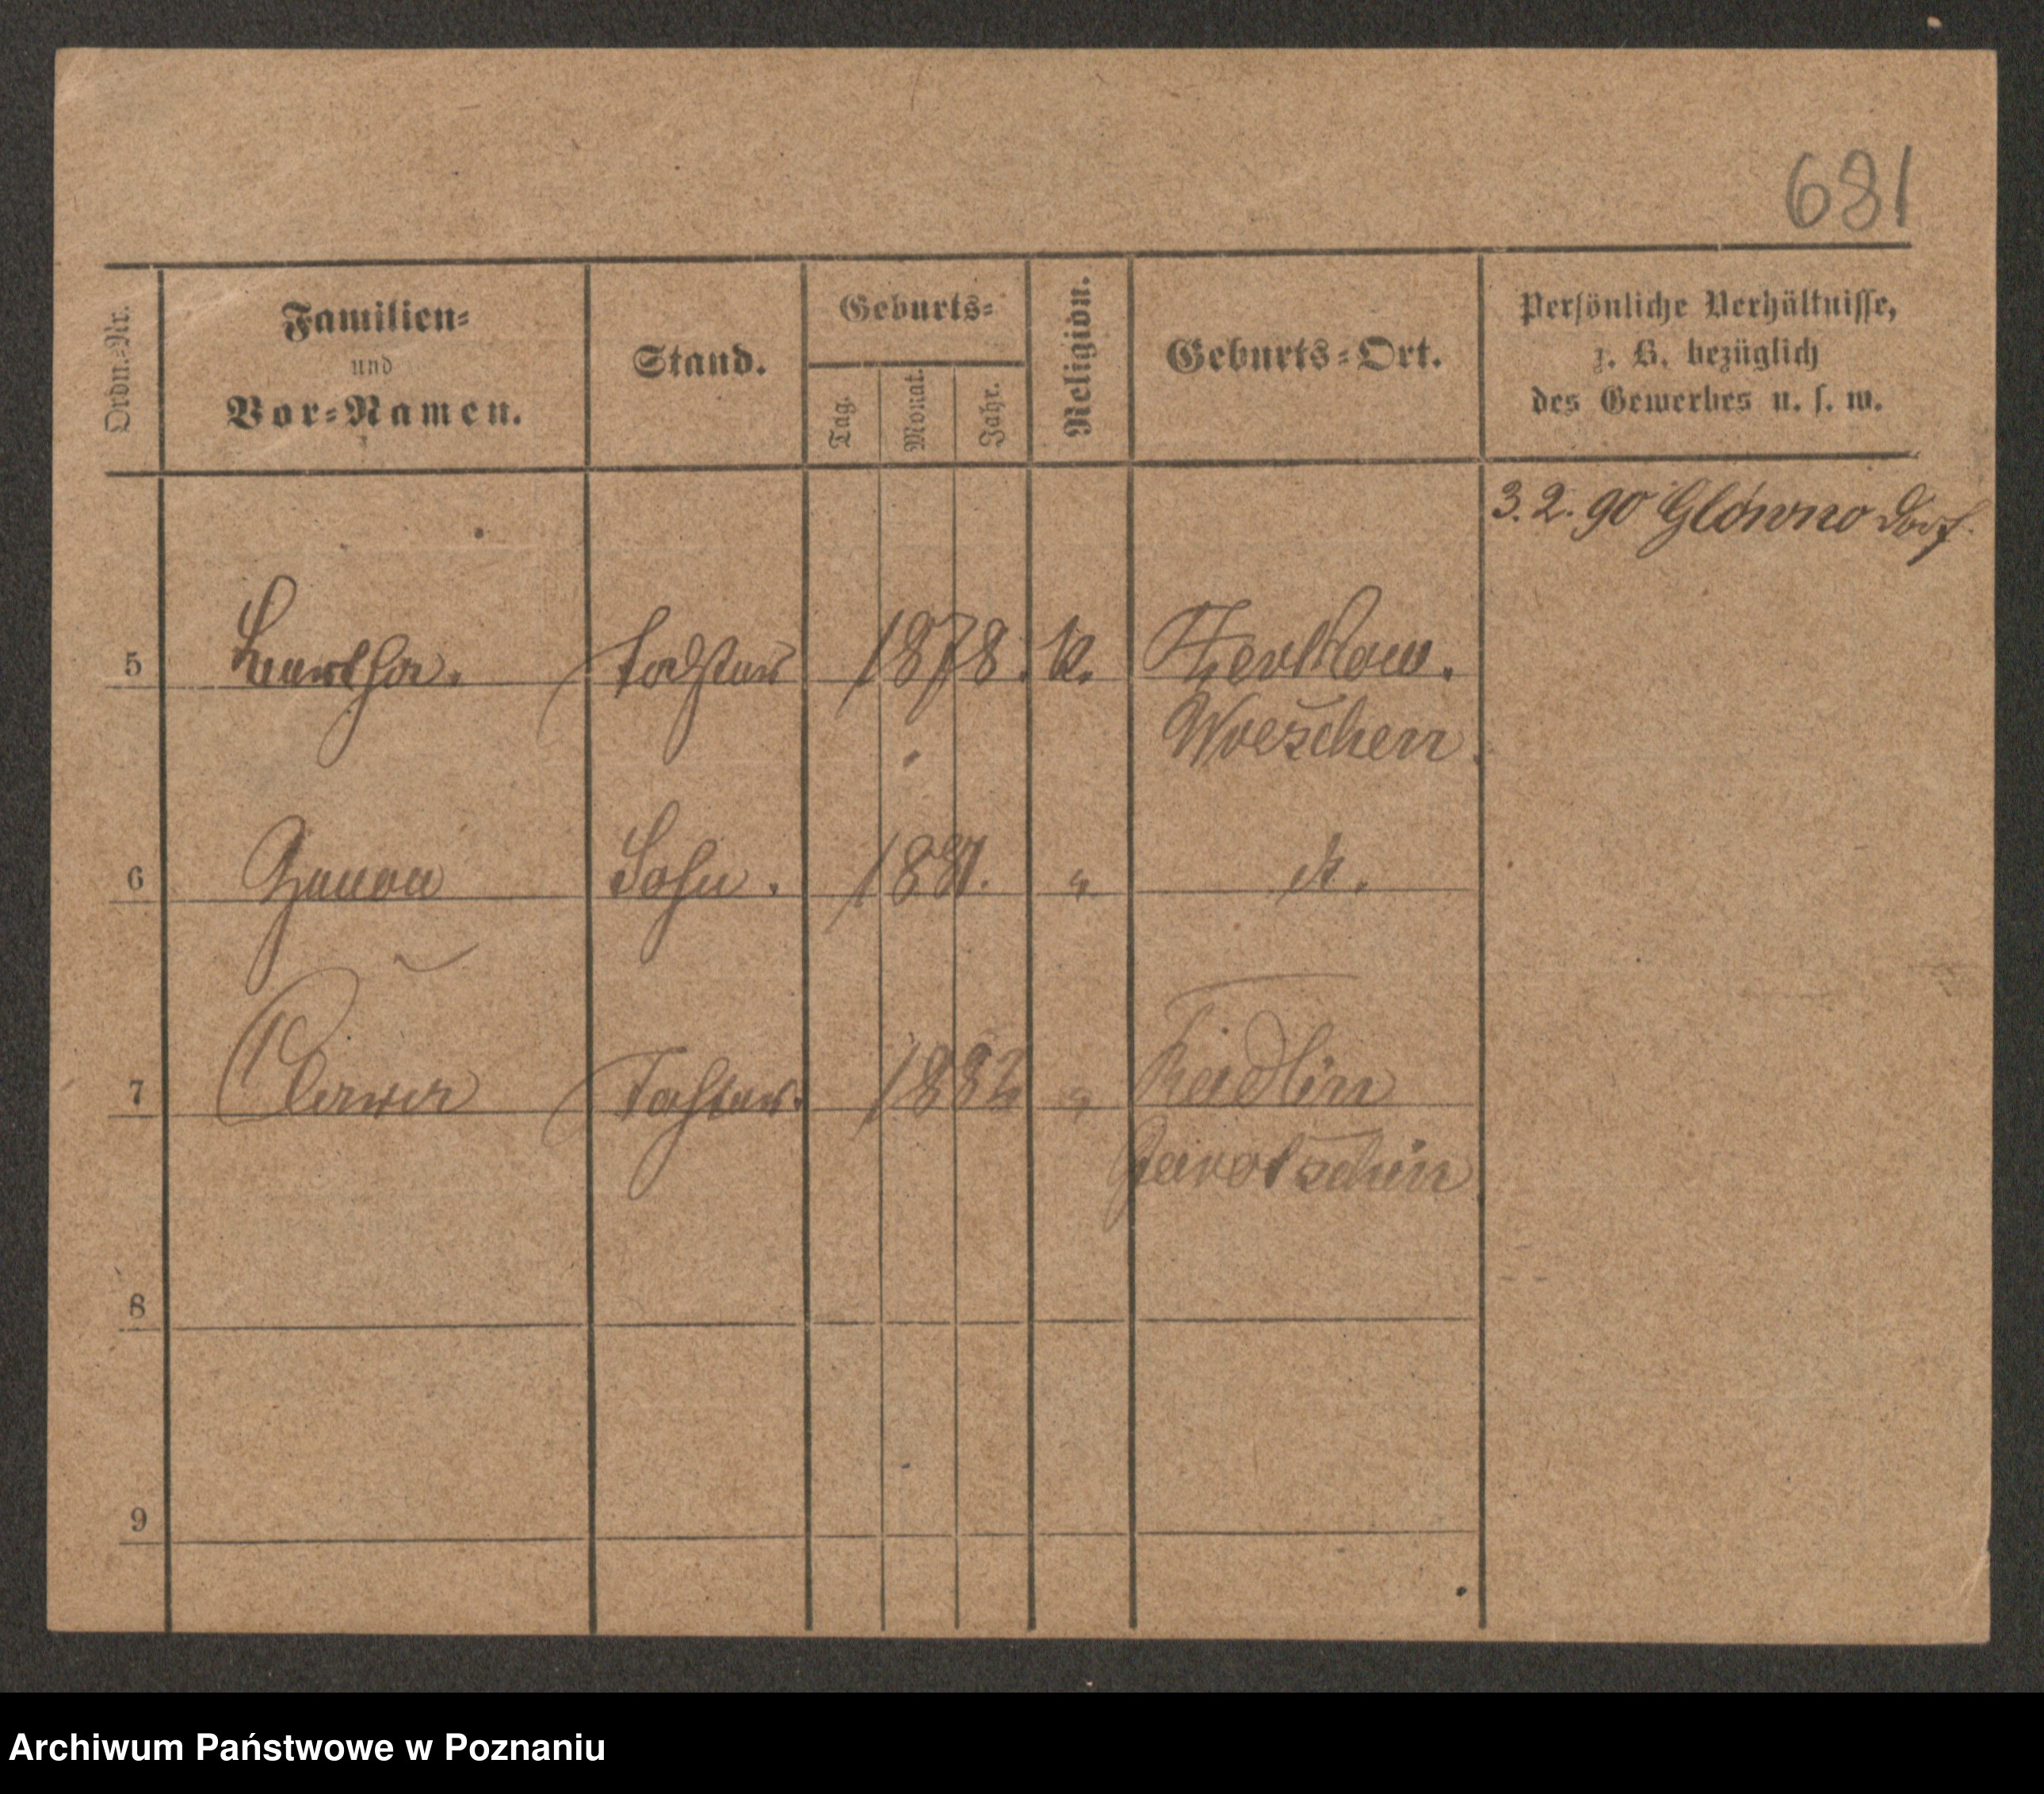 681
Ordn.-Nr.
Familien-
und
Vor-Namen.
Stand.
Geburts-
Tag.
Monat.
Jahr.
Religion.
Geburts-Ort.
Persönliche Verhältnisse,
z. B. bezüglich
des Gewerbes u. s. w.
3. 2. 90 Glówno Dorf.
5 Martha. Tochter 1878. k. Zerkow.
Wreschen
6 Sohn. 1881. "
7 Tochter. " Radlin
Jarotschin
8
9
Archiwum Państwowe w Poznaniu